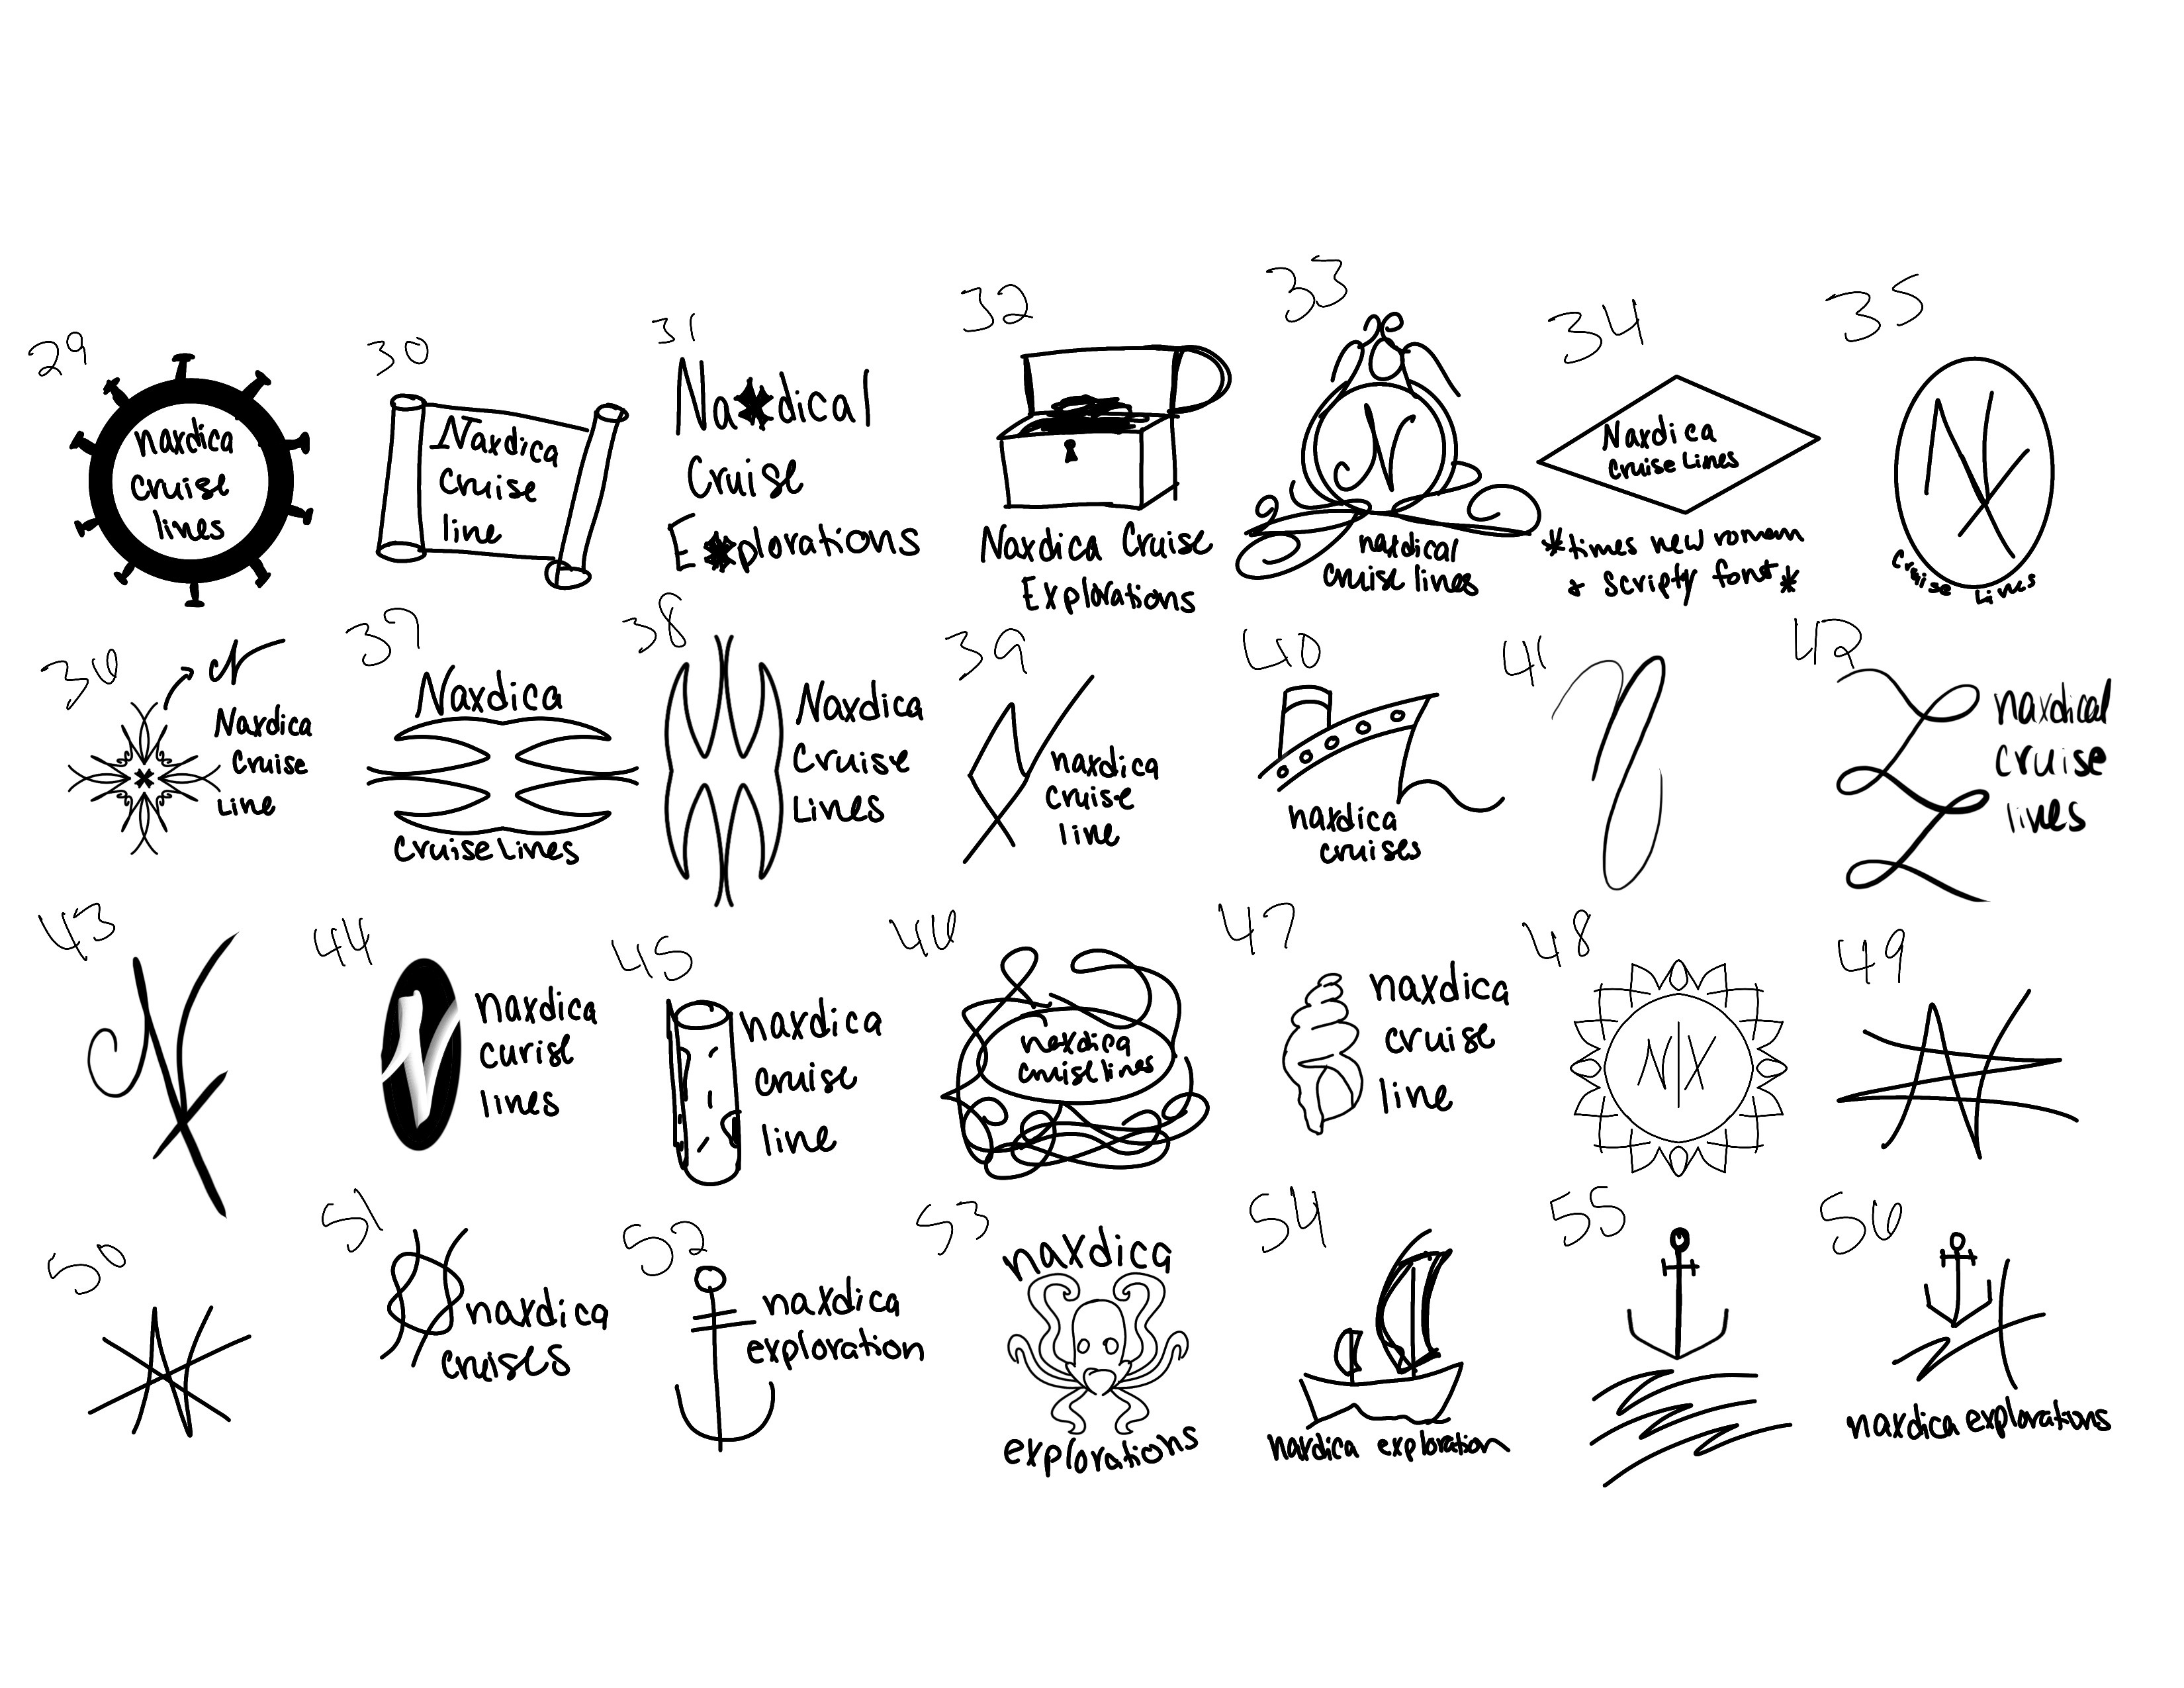 29
naxdica
cruise
lines
30
Naxdica
Cruise
line
31
Naxdical
Cruise
Explorations
32
Naxdica Cruise
Explorations
33
N
naxdical
cruise lines
34
Naxdica
cruise lines
*times new roman
& scripty font*
35
NX
cruise lines
36
N
Naxdica
Cruise
Line
37
Naxdica
Cruise Lines
38
Naxdica
Cruise
Lines
39
naxdica
cruise
line
40
naxdica
cruises
41
42
naxdical
cruise
lines
43
44
N
naxdica
curise
lines
45
naxdica
cruise
line
46
naxdica
cruise lines
47
naxdica
cruise
line
48
N|X
49
50
51
naxdica
cruises
52
naxdica
exploration
53
naxdica
explorations
54
naxdica exploration
55
56
naxdica explorations